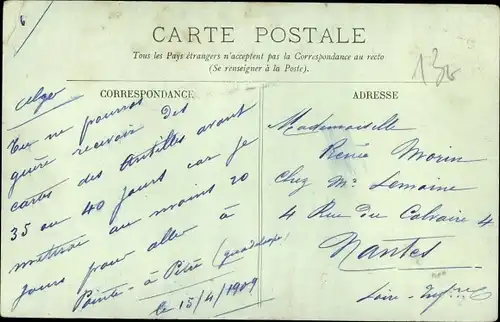 6
CARTE POSTALE
Tous les Pays étrangers n'acceptent pas la Correspondance au recto
(Se renseigner à la Poste).
136
CORRESPONDANCE
Alger
Tu ne pourras
guère recevoir des
cartes des Antilles avant
35 ou 40 jours car je
mettrai au moins 20
jours pour aller à
Pointe-à-Pitre (guadeloupe)
le 15/4/1909
ADRESSE
Mademoiselle
Renée Morin
Chez Mr Lemaine
4 Rue du Calvaire 4
Nantes
Loire-Infre